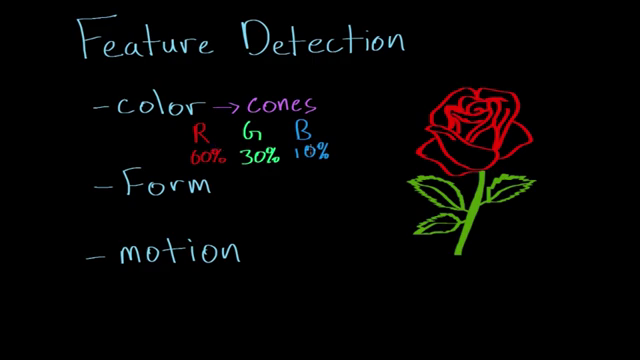 Feature Detection
- color → cones
R G B
60% 30% 10%
- Form
- motion